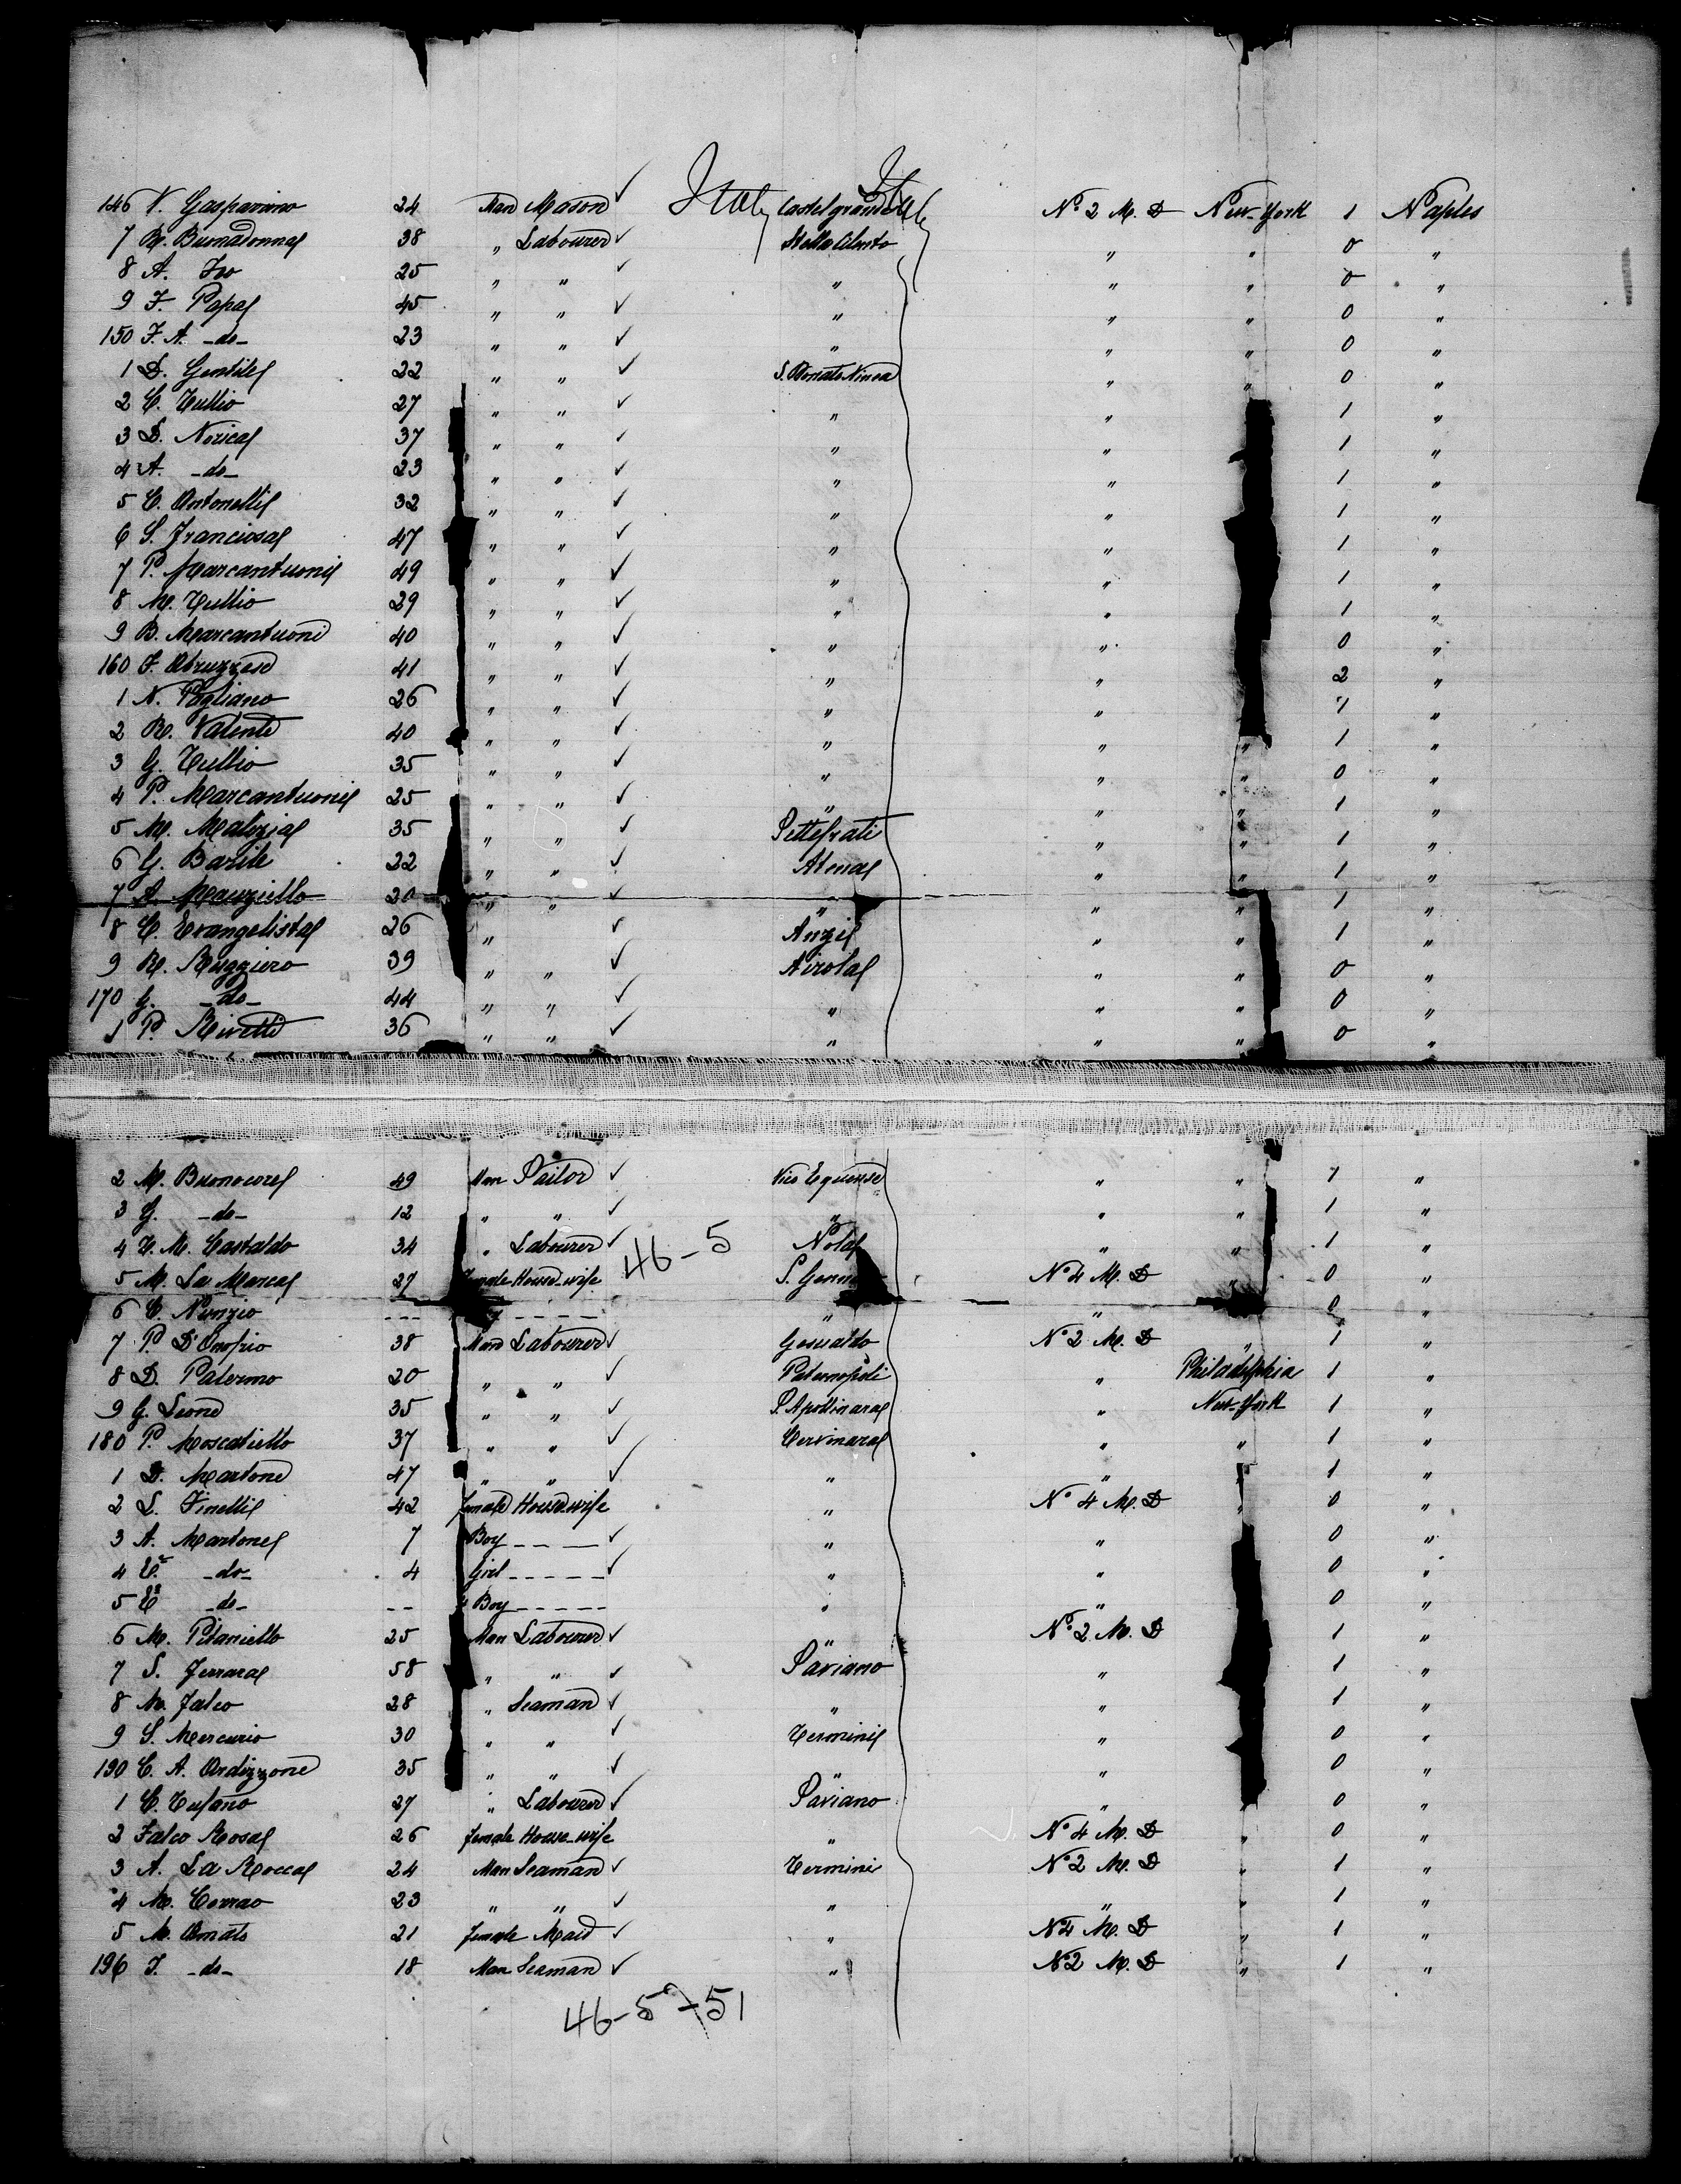 Italy Italy
146 V. Gaspariano 24 Man Mason ✓ Castelgrande No 2 M. D New-York 1 Naples
7 R. Buonadonna 38 " Labourer ✓ Stella Cilento " " 0 "
8 A. Izo 25 " " ✓ " " " 0 "
9 F. Papa 45 " " ✓ " " " 0 "
150 F. A. -do- 23 " " ✓ " " " 0 "
1 D. Gentile 22 " " ✓ S. Donato Ninea " " 0 "
2 C. Tullio 27 " " ✓ " " 1 "
3 D. Norica 37 " " ✓ " " 1 "
4 A. -do- 23 " " ✓ " " 1 "
5 C. Antonelli 32 " " ✓ " " 1 "
6 S. Franciosa 47 " " ✓ " " 1 "
7 P. Marcantuoni 49 " " ✓ " " 1 "
8 M. Tullio 29 " " ✓ " " 1 "
9 B. Marcantuoni 40 " " ✓ " " 0 "
160 F. Abruzzese 41 " " ✓ " " 2 "
1 N. Pagliano 26 " " ✓ " " 1 "
2 R. Valente 40 " " ✓ " " " 1 "
3 G. Tullio 35 " " ✓ " " " 0 "
4 P. Marcantuoni 25 " " ✓ " " " 1 "
5 M. 35 " " ✓ Settefrati " " 1 "
6 G. Barile 22 " " ✓ Atena " " 1 "
7 A. Mauziello 20 " " ✓ " " " 1 "
8 C. Evangelista 26 " ✓ Anzi " " 1 "
9 R. Ruggiero 39 " " ✓ Airola " " 0 "
170 G. -do- 44 " " ✓ " " " 0 "
1 P. Rivetti 36 " " ✓ " " " 0 "
2 M. Buonocore 49 Man Sailor ✓ Vico Equense " " 1 "
3 G. -do- 12 " " ✓ " " " 1 "
4 T. M. Castaldo 34 " Labourer ✓ 46-5 Nola " " 1 "
5 M. La Marca 27 Female House-wife S. Genn No 4 M. D " 0 "
6 C. Nunzio --- ---- " " 0 "
7 P. D'Onofrio 38 Man Labourer ✓ Gesualdo No 2 M. D " 1 "
8 D. Palermo 20 " " ✓ Paternopoli " Philadelphia 1 "
9 G. Leone 35 " " ✓ S. Apollinara " New-York 1 "
180 P. Moscatiello 37 " " ✓ Cervinara " " 1 "
1 D. Martone 47 " " ✓ " " " 1 "
2 L. Finelli 42 female House-wife " No 4 M. D " 0 "
3 A. Martone 7 Boy --- ✓ " " 0 "
4 C. -do- 4 Girl ---- ✓ " " 0 "
5 C. -do- -- Boy ---- " " 0 "
6 M. Pitaniello 25 Man Labourer ✓ " No 2 M. D 1 "
7 S. Ferrara 58 " " ✓ Saviano " 1 "
8 M. Falco 28 " Seaman ✓ " " 1 "
9 S. Mercurio 30 " " ✓ Termini " 0 "
190 C. A. Ardizzone 35 " " ✓ " " 0 "
1 C. Tufano 27 " Labourer ✓ Saviano " " 0 "
2 Falco Rosa 26 female House-wife " No 4 M. D " 0 "
3 A. La Rocca 24 Man Seaman ✓ Termini No 2 M. D " 1 "
4 M. Corrao 23 " " ✓ " " " 1 "
5 M. Amato 21 female Maid ✓ " No 4 M. D " 1 "
196 F. -do- 18 Man Seaman ✓ " No 2 M. D " 1 "
46-5-51